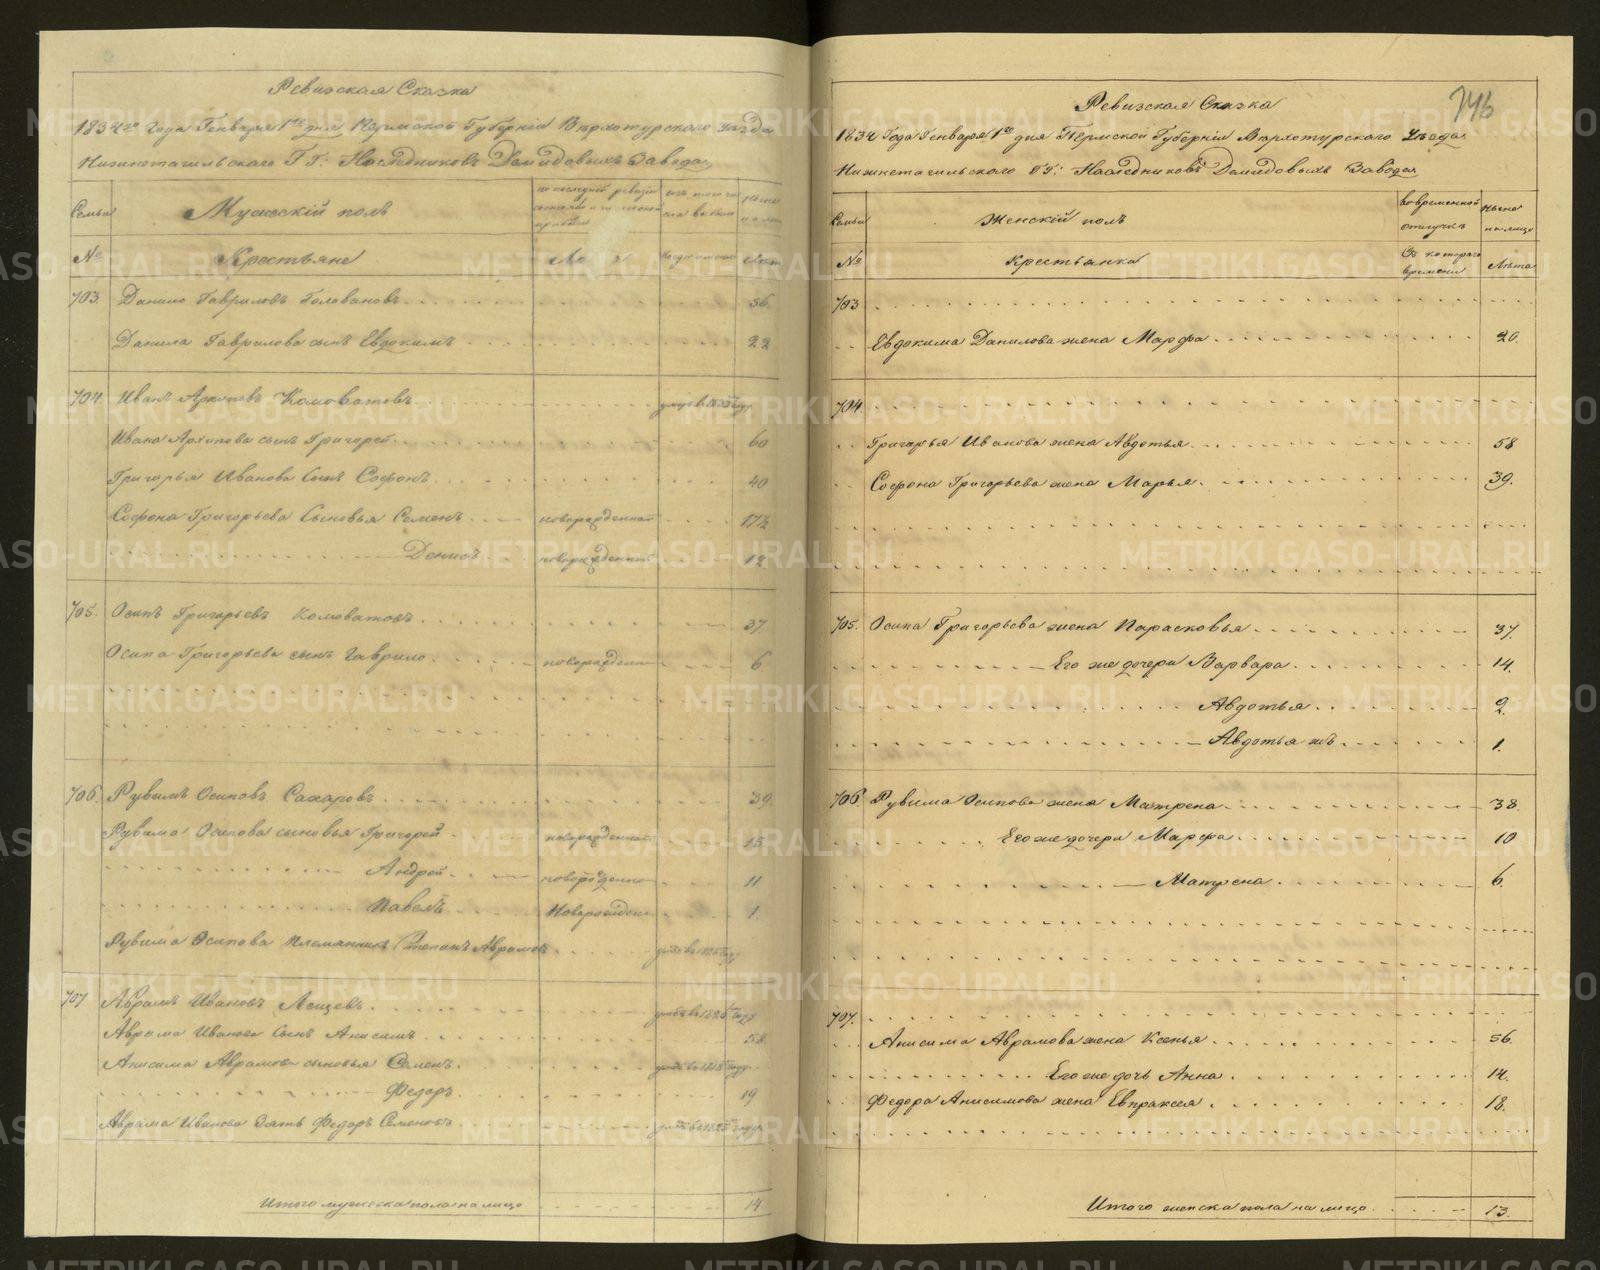 Ревизская Сказка
1834го Года Генваря 1го дня Пермской Губернiи Верхотурского уѣзда
Нижнетагильского ГГ: Наслѣдниковъ Демидовыхъ Завода
Семьи Мужескiй полъ по последней ревизiи состояло и изъ того числа выбыло ныне на лицо
№ Крестьяне Лѣта Когда именно Лѣта
703 Данило Гавриловъ Головановъ 56
Данила Гаврилова сынъ Евдокимъ 22
704 Иванъ Архиповъ Комоватовъ году
Ивана Архипова сынъ Григорей 60
Григорья Иванова Сынъ Софонъ 40
Софона Григорьева Сыновья Семенъ новорожденной 17½
Денисъ новорожденной 12
705. Осипъ Григорьевъ Комоватовъ 37
Осипа Григорьева сынъ Гаврило новорожден 6
706 Рувимъ Осиповъ Сахаровъ 39.
Рувима Осипова сыновья Григорей новорожденной 15
Андрей новорожденно 11
Павелъ Новорожден 1.
Рувима Осипова племянникъ Степанъ Аврамовъ году
707 Аврамъ Ивановъ Лещевъ году
Аврама Иванова Сынъ Анисимъ 58
Анисима Аврамова сыновья Семенъ году
Федоръ 19
Аврама Иванова Зять Федоръ Семеновъ году
Итого мужеска пола на лицо 14
746
Ревизская Сказка
1834 Года Генваря 1го дня Пермской Губернiи Верхотурского Уѣзда
Нижнетагильского ГГ: Наследниковъ Демидовыхъ Завода
Семьи Женскiй полъ Во временной отлучкѣ Ныне на лицо
№ Крестьянка Съ котораго времени Лѣта
703
Евдокима Данилова жена Марфа 20.
704
Григорья Иванова жена Авдотья 58
Софона Григорьева жена Марья 39.
705. Осипа Григорьева жена Парасковья 37.
Его же дочери Варвара 14.
Авдотья 2.
Авдотья жъ 1.
706 Рувима Осипова жена Матрена 38.
Его же дочери Марфа 10
Матрена 6.
707.
Анисима Аврамова жена Ксенья 56.
Его же дочь Анна 14.
Федора Анисимова жена Евпраксея 18.
Итого женска пола на лицо 13.
METRIKI.GASO-URAL.RU